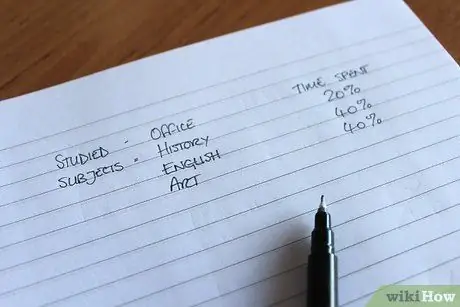 STUDIED - OFFICE TIME SPENT
SUBJECTS - HISTORY 20%
ENGLISH 40%
ART 40%
wikiHow